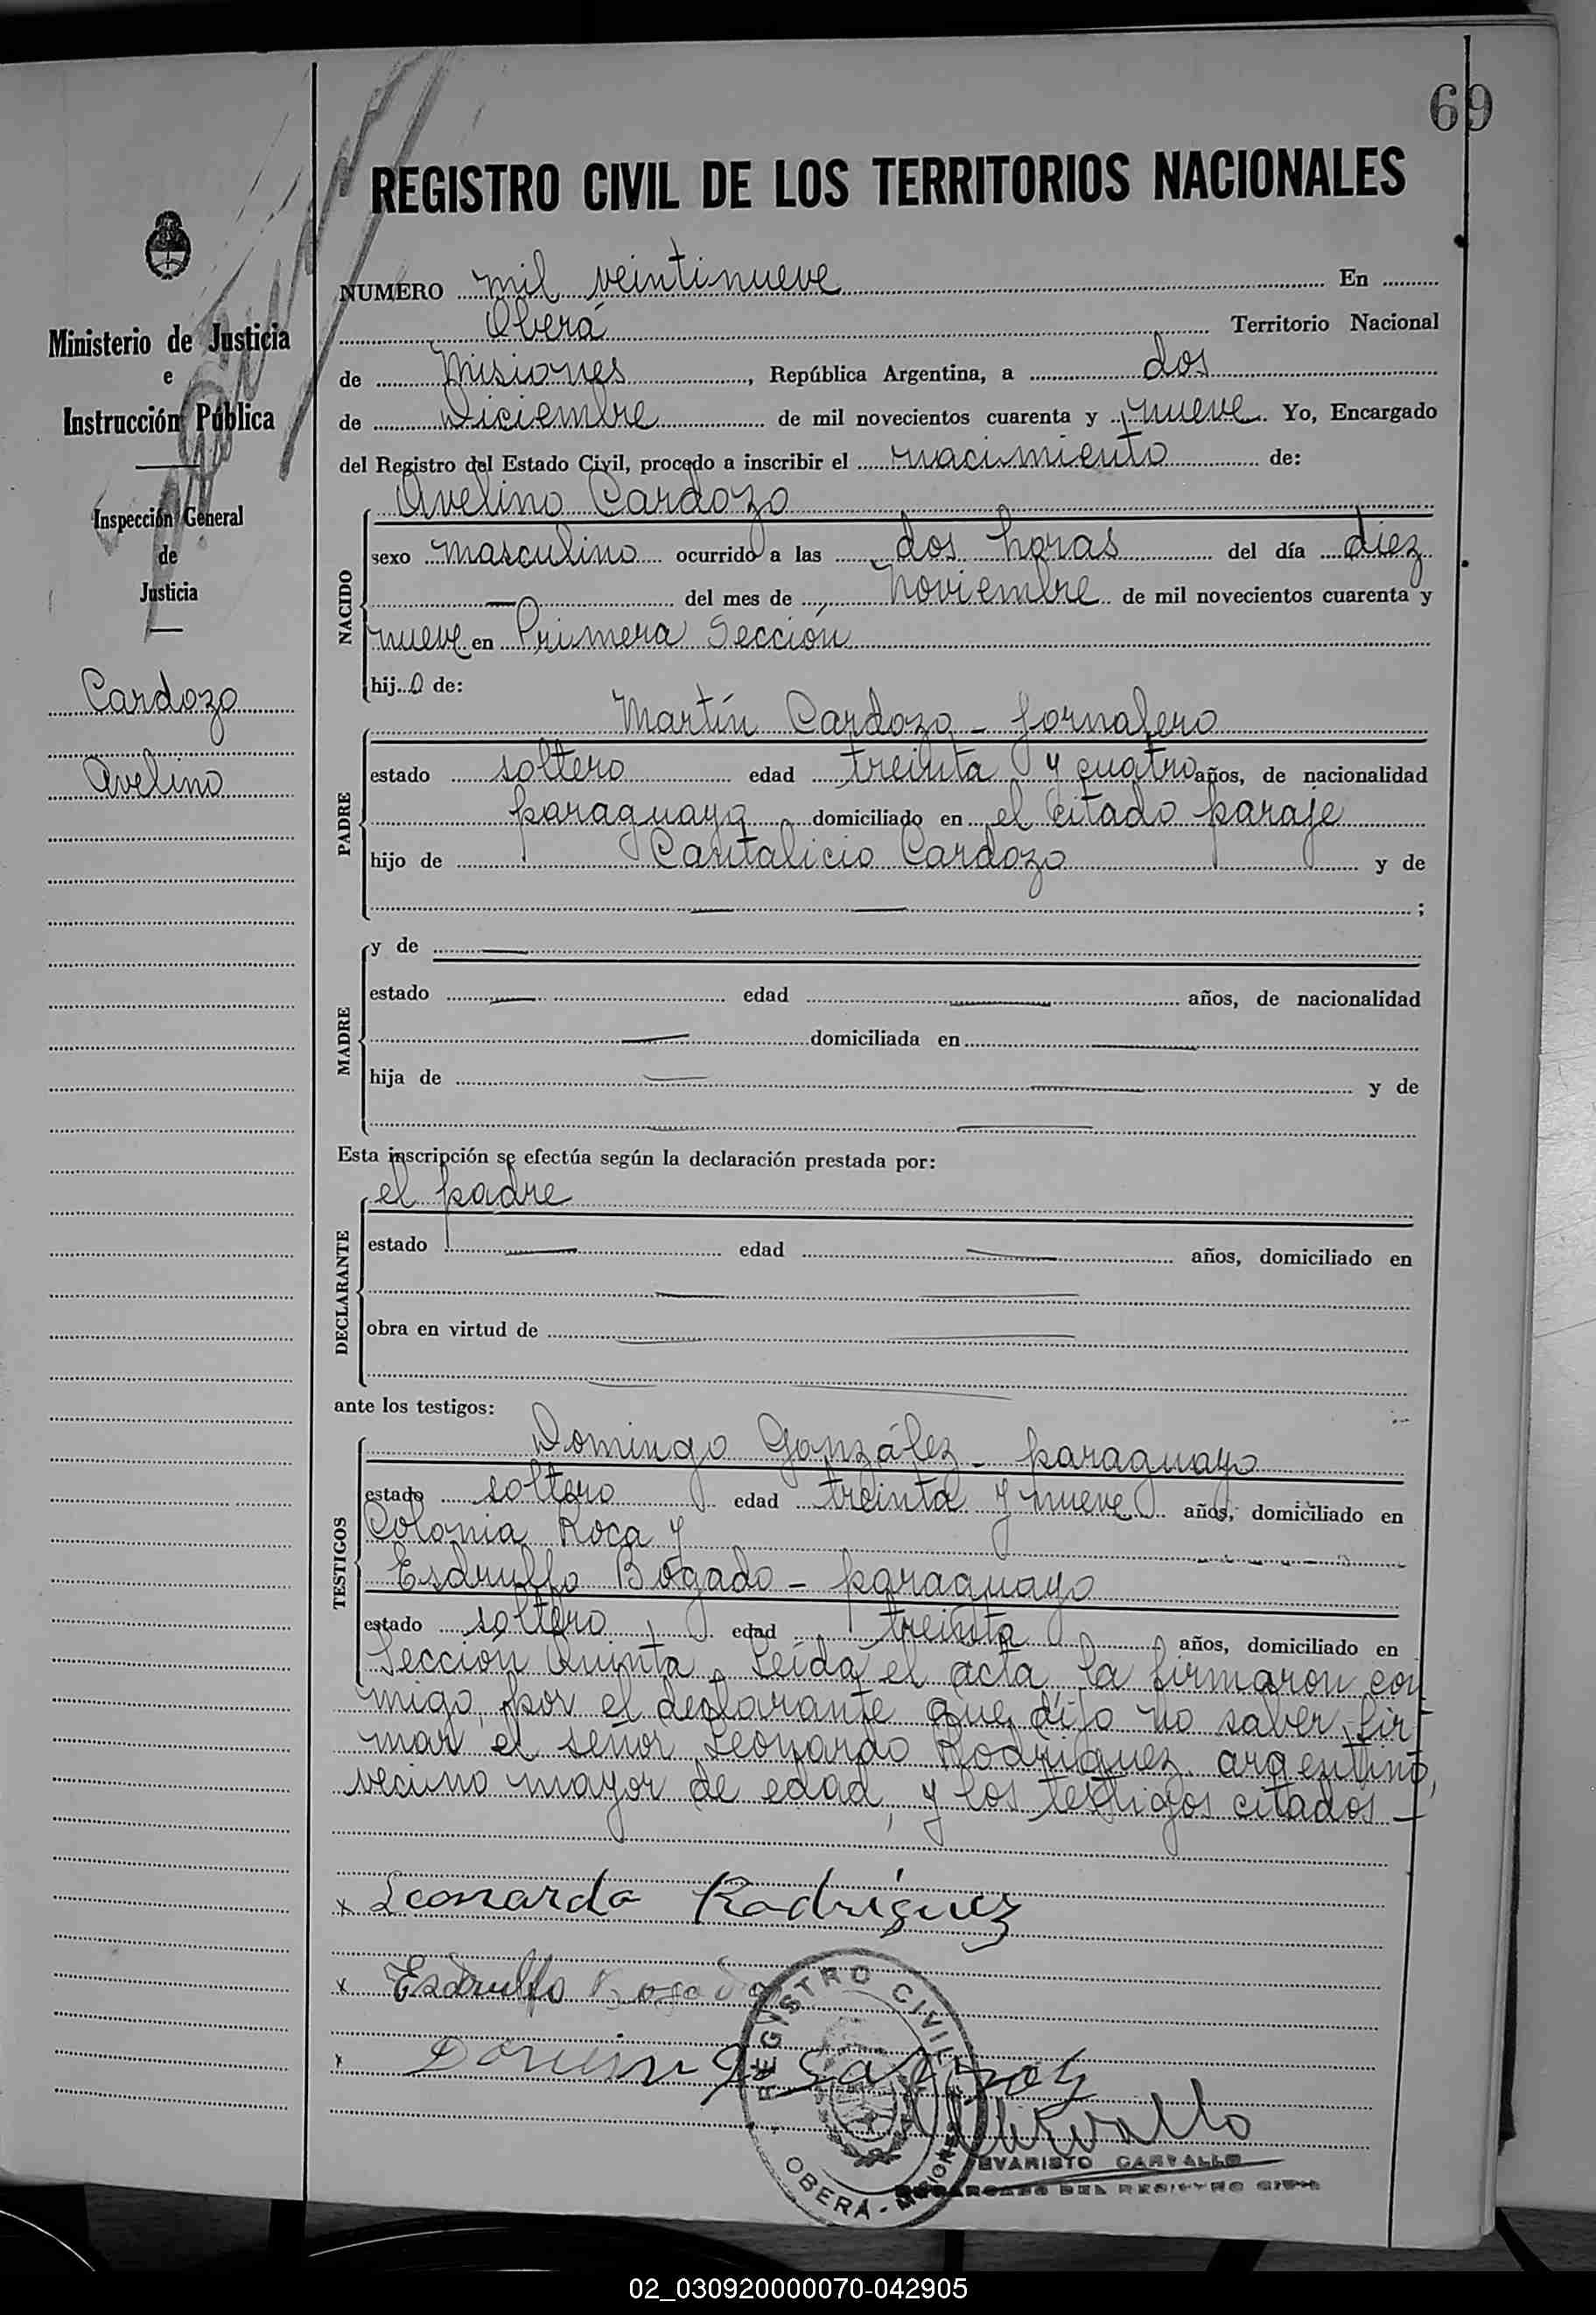 69
REGISTRO CIVIL DE LOS TERRITORIOS NACIONALES
Ministerio de Justicia
e
Instrucción Pública
Inspección General
de
Justicia
Cardozo
Avelino
NUMERO mil veintinueve En
Oberá Territorio Nacional
de Misiones, República Argentina, a dos
de Diciembre de mil novecientos cuarenta y nueve. Yo, Encargado
del Registro del Estado Civil, procedo a inscribir el nacimiento de:
Avelino Cardozo
NACIDO
sexo masculino ocurrido a las dos horas del día diez
— del mes de noviembre de mil novecientos cuarenta y
nueve en Primera Sección
hijo de:
PADRE
Martín Cardozo - jornalero
estado soltero edad treinta y cuatro años, de nacionalidad
paraguaya domiciliado en el citado paraje
hijo de Cantalicio Cardozo y de
— — ;
MADRE
y de —
estado — edad — años, de nacionalidad
— domiciliada en —
hija de — — y de
— —
Esta inscripción se efectúa según la declaración prestada por:
DECLARANTE
el padre
estado — edad — años, domiciliado en
— —
obra en virtud de — —
— —
ante los testigos:
TESTIGOS
Domingo González - paraguayo
estado soltero edad treinta y nueve años, domiciliado en
Colonia Roca y
Esdrulfo Bogado - paraguayo
estado soltero edad treinta años, domiciliado en
Sección Quinta. Leída el acta la firmaron con
migo, por el declarante que dijo no saber fir-
mar el señor Leonardo Rodríguez argentino,
vecino mayor de edad, y los testigos citados —
x Leonardo Rodríguez
x Esdrulfo Bogado
x
REGISTRO CIVIL
OBERÁ - MISIONES
Carvallo
EVARISTO CARVALLO
ENCARGADO DEL REGISTRO CIVIL
02_030920000070-042905